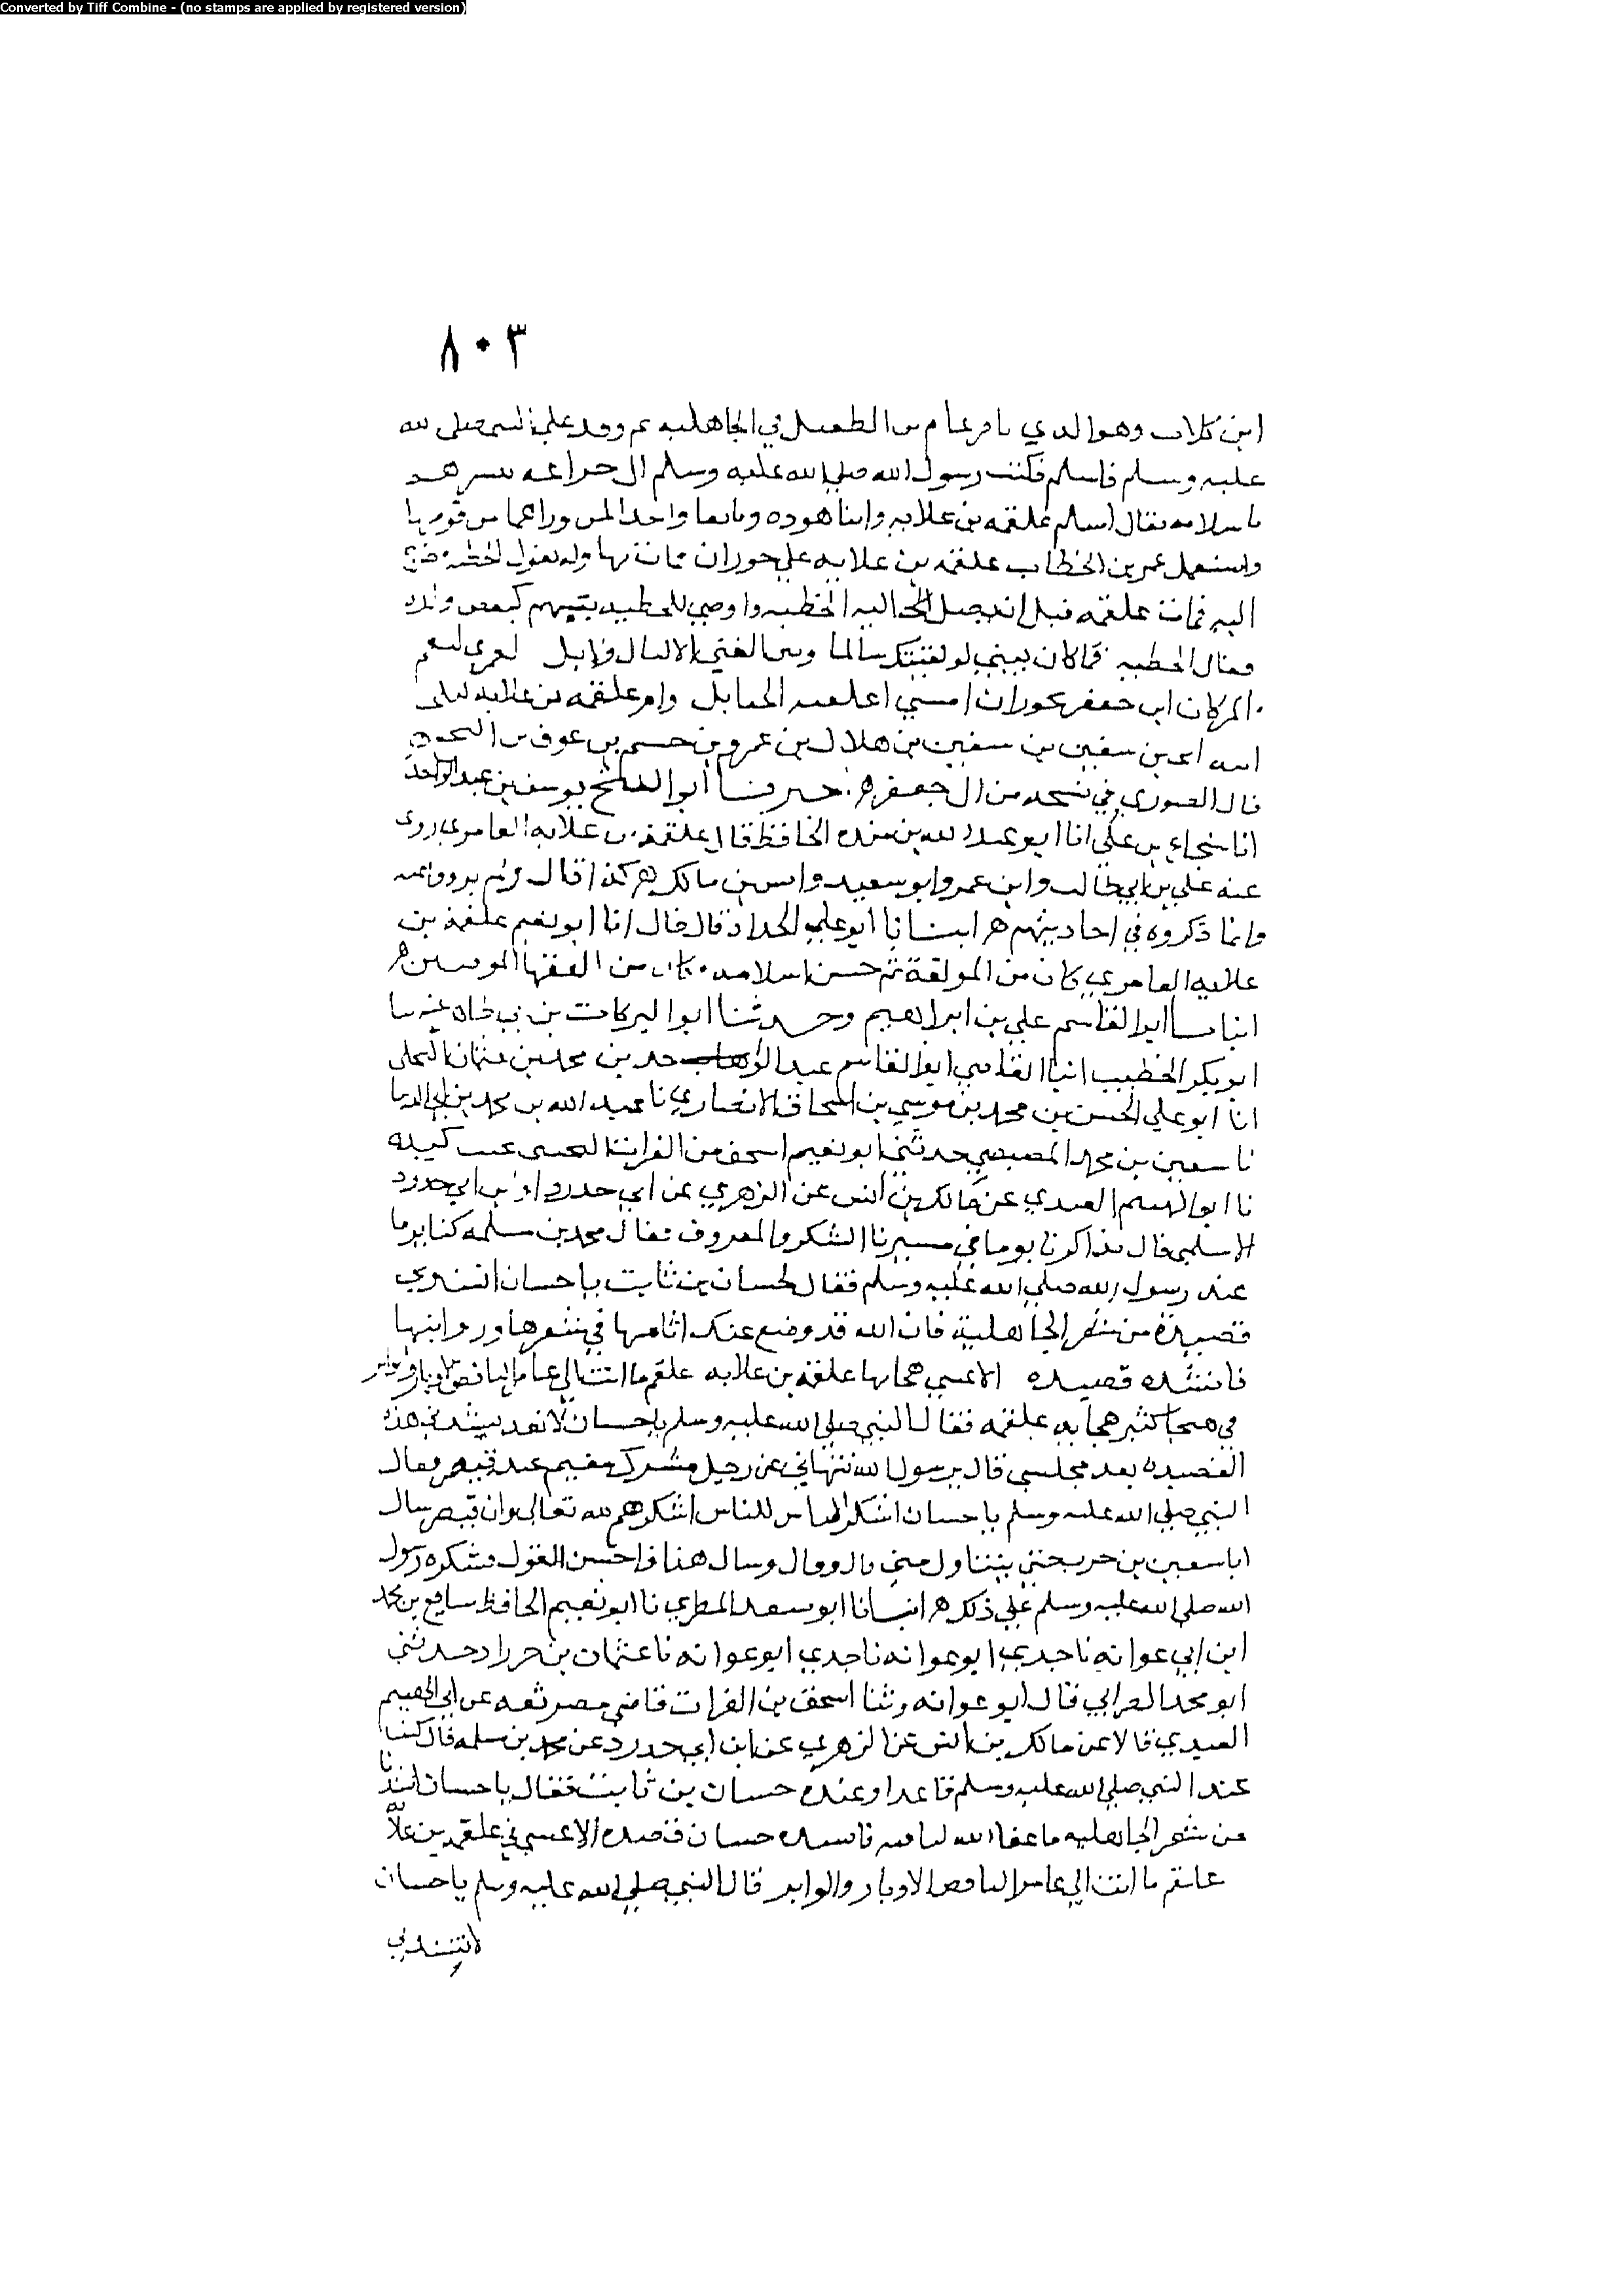 Converted by Tiff Combine - (no stamps are applied by registered version)
٨٠٣
ابن كلاب وهو الدي نافر عامر بن الطفيل في الجاهليه ثم وفد علي النبي صلى الله
عليه وسلم فاسلم فكتب رسول الله صلي الله عليه وسلم الى خزاعه يبشرهم
باسلامه فقال اسلم علقمه بن علاثه وابنا هوده وبايعا واخذا لمن وراهما من قومهما
واستعمل عمر بن الخطاب علقمه بن علاثه علي حوران فمات بها وله يقول الحطيه خرج
اليه فمات علقمه قبل ان يصل اليه الحطيه واوصي للحطيه بسهم كبعض ولده
فقال الحطيه فما كان بيني لو لقيتك سالما وبين الغني الا ليال قلايل لعمري لنعم
المر كان ابن جعفر بحوران امسي اعلقته الحبايل وام علقمه بن علاثه ليلى
ابنه ابي بن سفين بن هلال بن عمرو بن جسم بن عوف بن النخع
قال الصوري في نسخه من ال جعفر ه اخبرنا ابو الفتح يوسف بن عبد الواحد
انا شجاع بن علي انا ابو عبد الله بن منده الحافظ قال علقمه بن علاثه العامري روى
عنه علي بن ابي طالب وابن عمر وابو سعيد وانس بن مالك ه كذا قال ولم يرووا عنه
وانما ذكروه في احاديثهم ه انبانا ابو علي الحداد قال قال انا ابو نعيم علقمه بن
علاثه العامري كان من المولفة ثم حسن اسلامه كان من الفقها الموسين ه
انبانا ابو القاسم علي بن ابراهيم وحدثنا ابو البركات بن ابي طاهر عنه نا
ابو بكر الخطيب انبا القاضي ابو القاسم عبد الواحد بن محمد بن عثمان البجلى
انا ابو علي الحسن بن محمد بن موسي بن اسحاق الانصاري نا عبيد الله بن محمد بن ابي الدنيا
نا سفين بن محمد المصيصي حدثني ابو نعيم اسحق بن الفرات التجيبى
نا ابو الهيثم العبدي عن مالك بن انس عن الزهري عن ابي حدرد او ابن ابي حدرد
الاسلمي قال تذاكرنا يوما في مسيرنا الشكر والمعروف فقال محمد بن مسلمه كنا يوما
عند رسول الله صلي الله عليه وسلم فقال لحسان بن ثابت يا حسان انشدني
قصيدة من شعر الجاهلية فان الله قد وضع عنك اثامها في شعرها وروايتها
فانشده قصيده الاعسي هجا بها علقمه بن علاثه علقم ما انت الي عامر الناقض الاوتار والواتر
في هجا كثير هجا به علقمه فقال النبي صلي الله عليه وسلم يا حسان لا تعد تنشدني هذه
القصيده بعد مجلسي قال يرسول الله تنهاني عن رجل مشرك مقيم عند قيصر فقال
النبي صلي الله عليه وسلم يا حسان اشكر الناس للناس اشكرهم لله تعالى وان قيصر سال
ابا سفين بن حرب عني فتناول مني وقال وقال وسال هذا فاحسن القول فشكره رسول
الله صلي الله عليه وسلم علي ذلك ه انبانا ابو سعد المطرز نا ابو نعيم الحافظ نا شافع بن محمد
ابن ابي عوانه نا جدي ابو عوانه نا جدي ابو عوانه نا عثمان بن خرزاد حدثني
ابو محمد العرابي قال ابو عوانه وثنا اسحق بن الفرات قاضي مصر ثقه عن ابي الهيثم
العبدي قالا عن مالك بن انس عن الزهري عن ابن ابي حدرد عن محمد بن مسلمه قال كنا
عند النبي صلي الله عليه وسلم قاعدا وعنده حسان بن ثابت فقال يا حسان انشدنا
من شعر الجاهليه ما عفا الله لنا فيه فانشده حسان قصيده الاعسي في علقمه بن علاثه
علقم ما انت الي عامر الناقض الاوتار والواتر قال النبي صلي الله عليه وسلم يا حسان
لا تنشدني